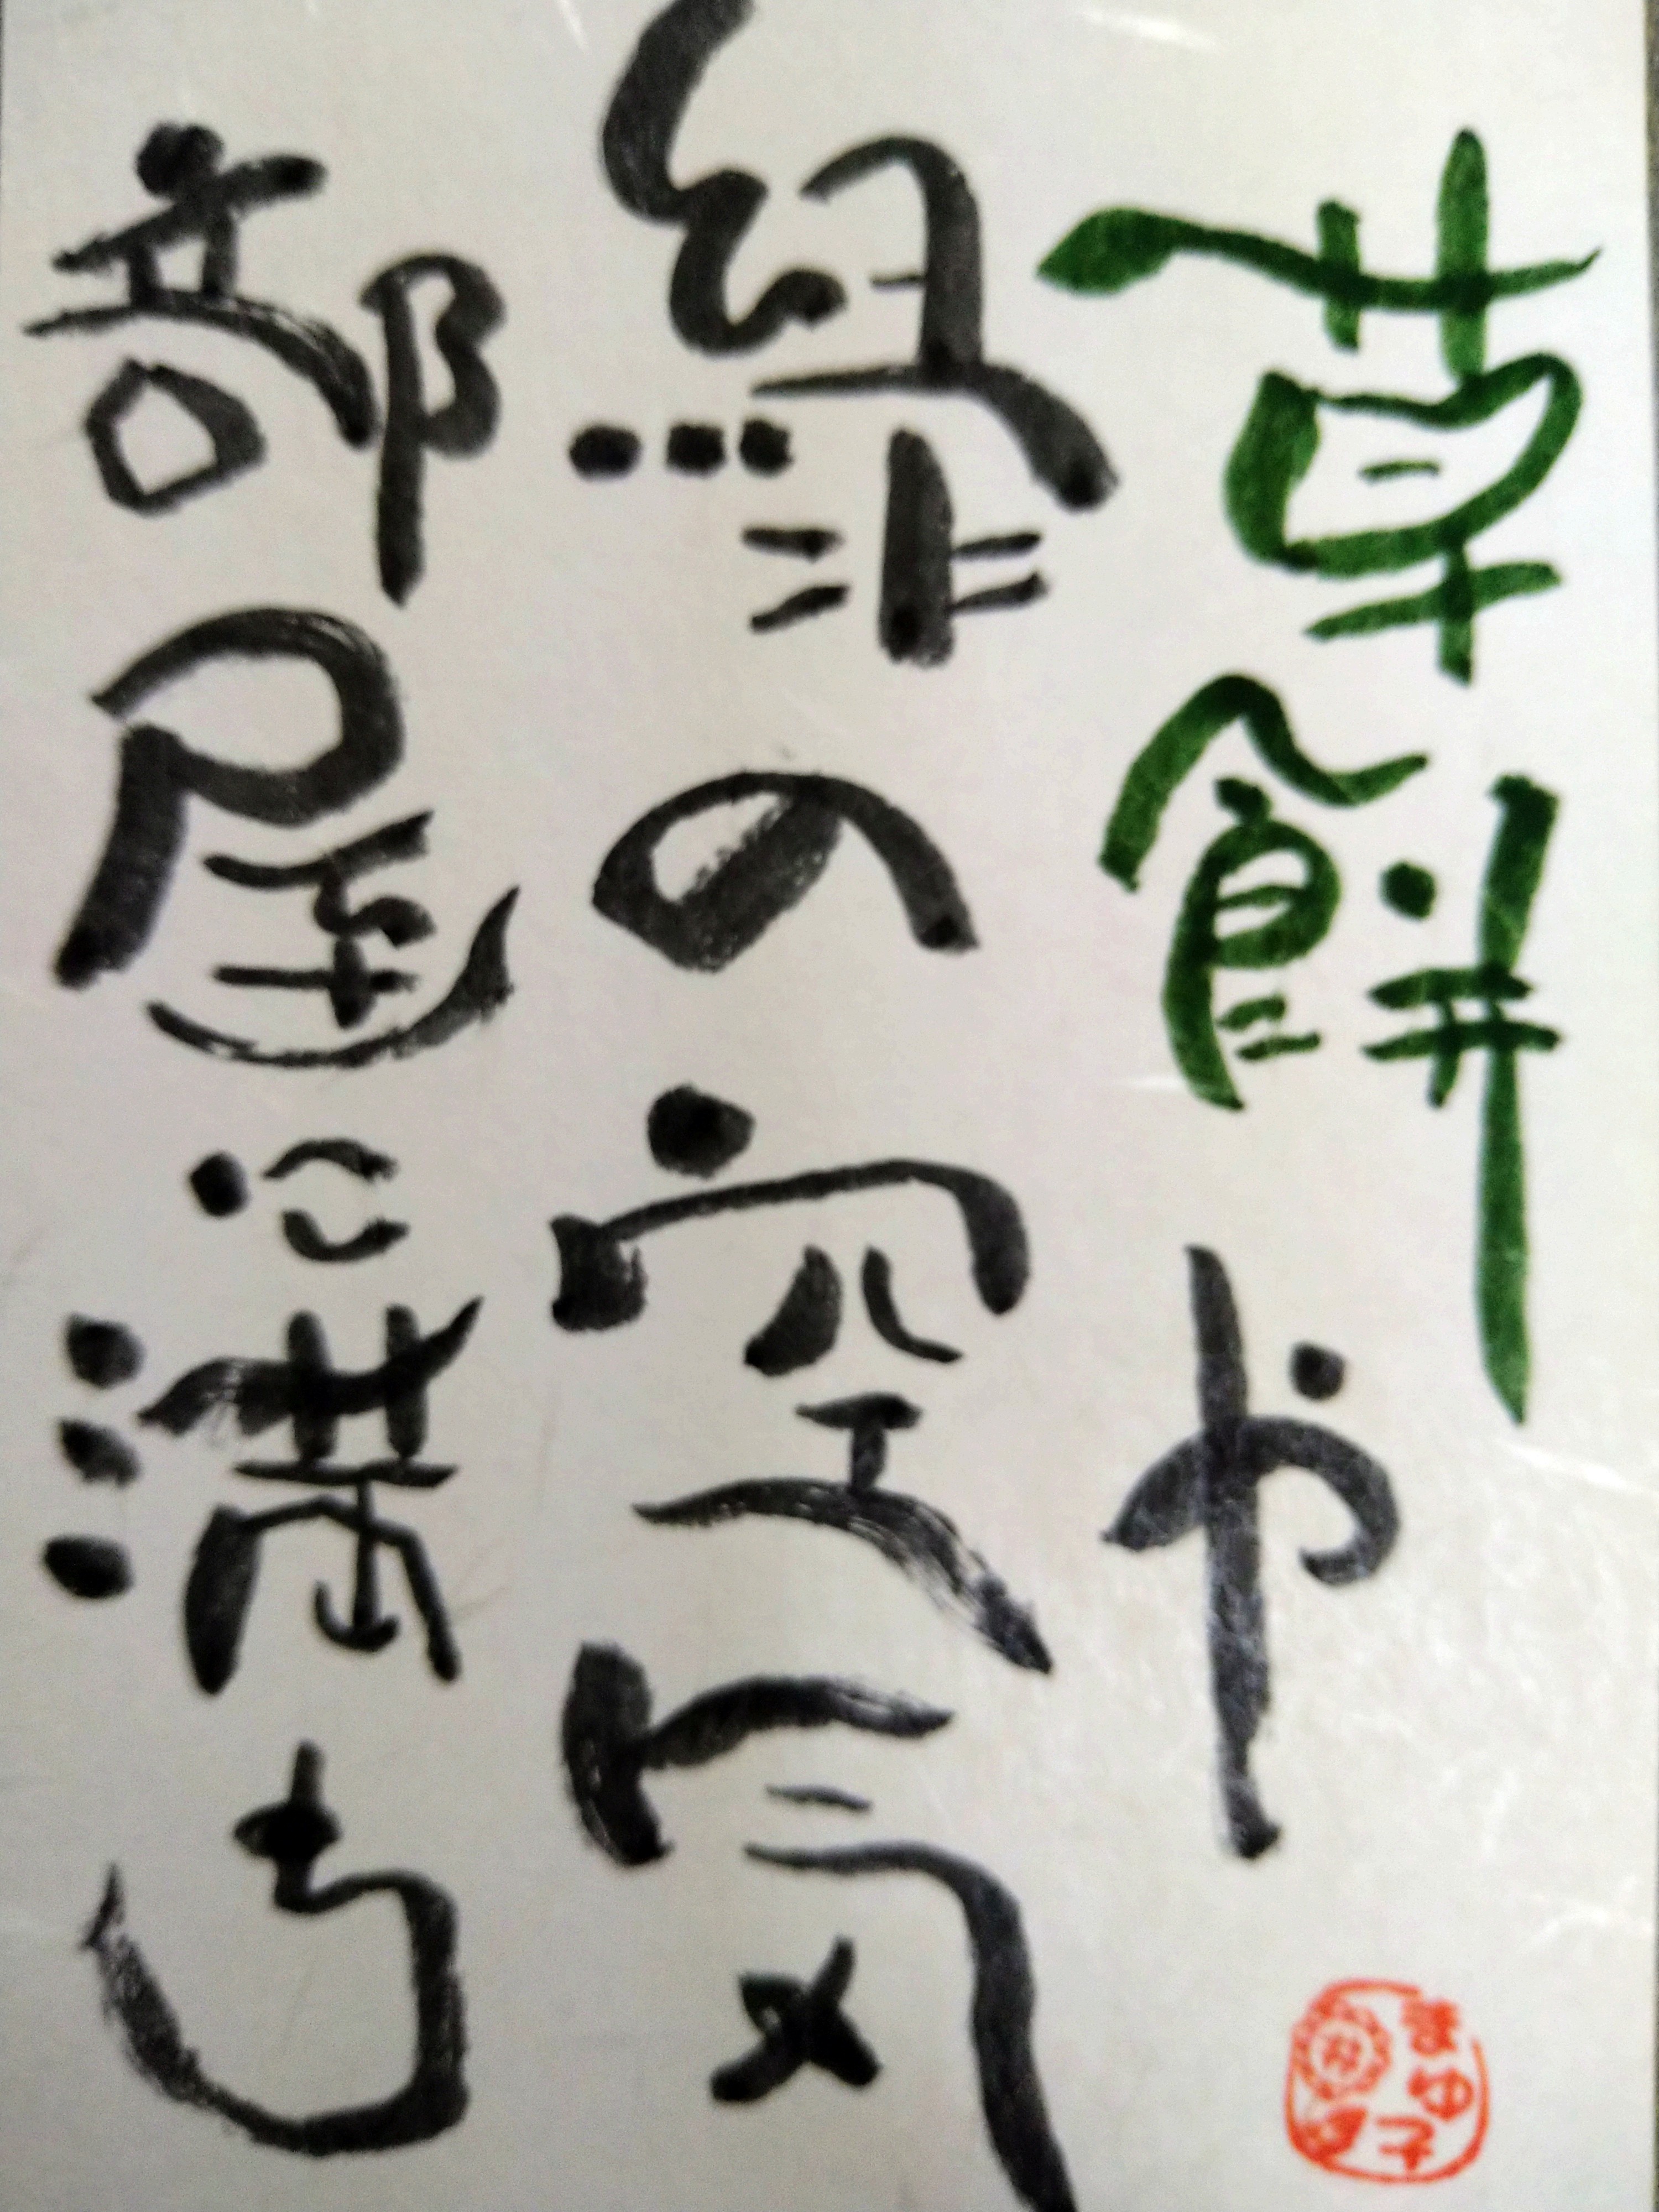 草餅や
緑の空気
部屋に満ち
まゆ子